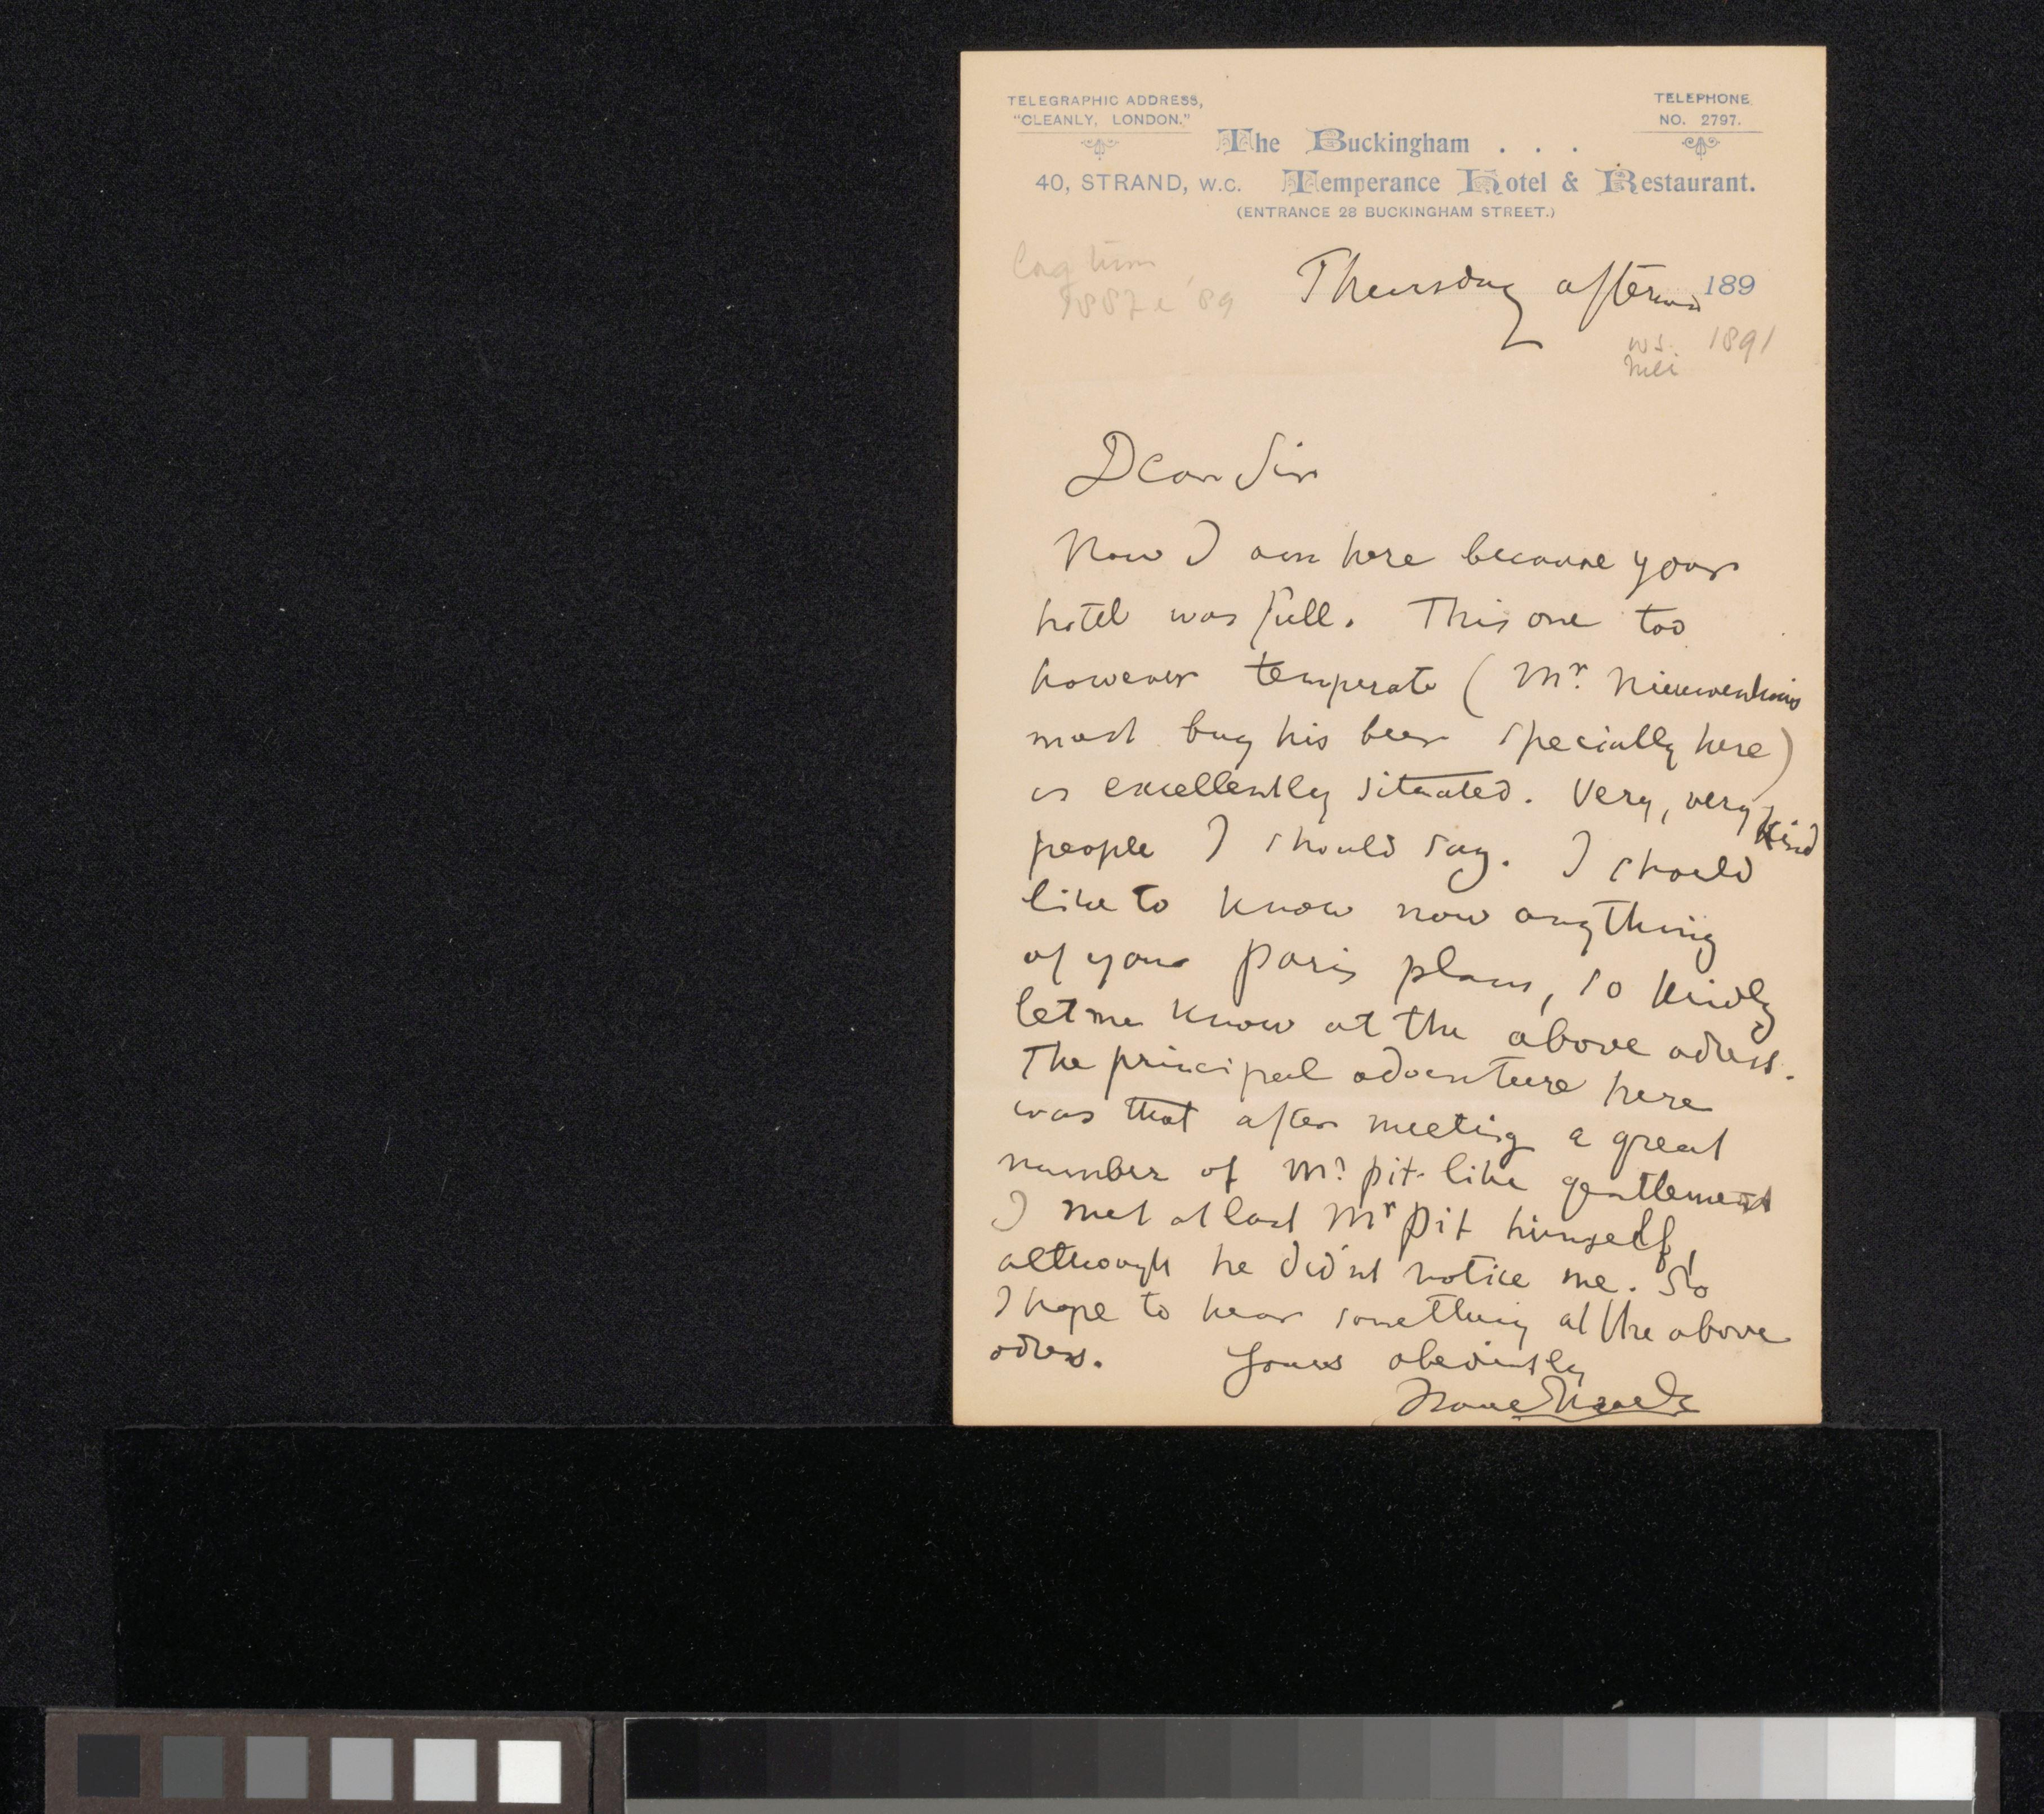 TELEGRAPHIC ADDRESS,
"CLEANLY, LONDON."
TELEPHONE
NO. 2797.
The Buckingham . . .
40, STRAND, W.C. Temperance Hotel & Restaurant.
(ENTRANCE 28 BUCKINGHAM STREET.)
Thursday 189
1887 '89
1891
ws.
mei
Dear Sir
Now I am here because your
hotel was full. This one too
however temperate (Mr. Nieuwenhuis
must buy his beer specially here)
is excellently situated. Very, very kind
people I should say. I should
like to know now anything
of your Paris plans, so kindly
let me know at the above adress.
The principal adventure here
was that after meeting a great
number of Mr. Pit-like gentlemen
I met at last Mr Pit himself,
although he did'nt notice me. So
I hope to hear something at the above
adress. Yours obediently